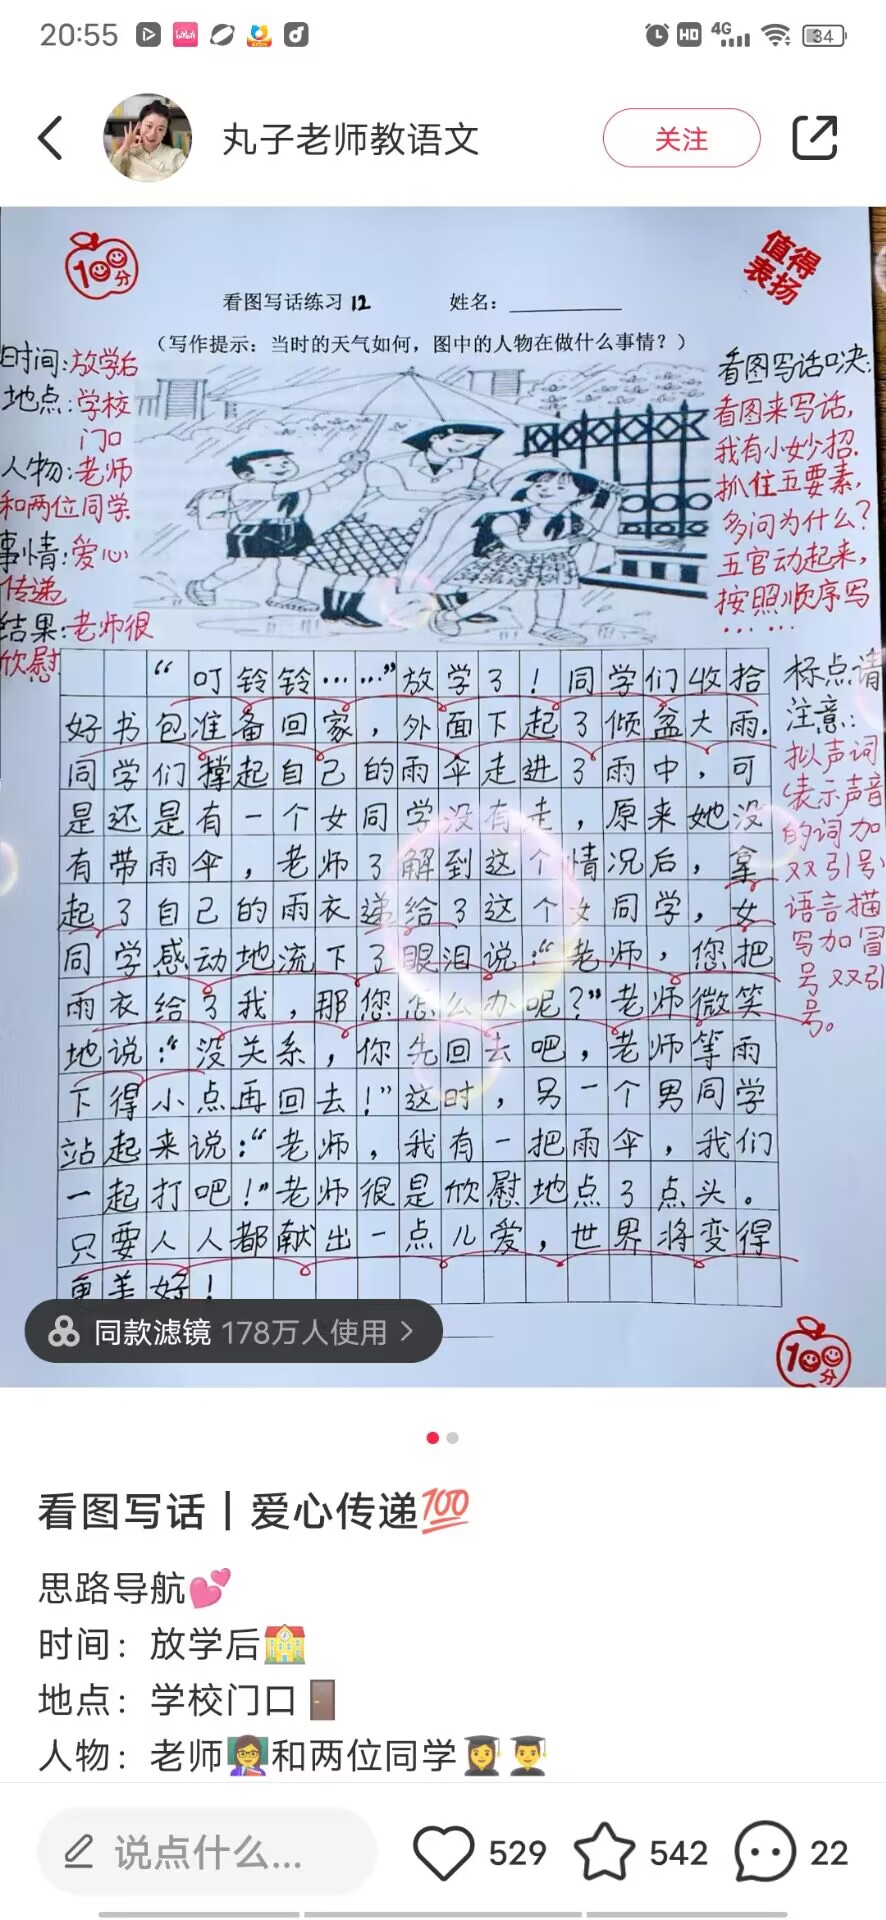 20:55
HD
4G
34
丸子老师教语文
关注
100分
值得
表扬
看图写话练习12 姓名：
（写作提示：当时的天气如何，图中的人物在做什么事情？）
时间:放学后
地点:学校
门口
人物:老师
和两位同学
事情:爱心
传递
结果:老师很
欣慰
看图写话口决:
看图来写话,
我有小妙招.
抓住五要素,
多问为什么?
五官动起来,
按照顺序写
……
“叮铃铃……”放学了！同学们收拾
好书包准备回家，外面下起了倾盆大雨.
同学们撑起自己的雨伞走进了雨中，可
是还是有一个女同学没有走，原来她没
有带雨伞，老师了解到这个情况后，拿
起了自己的雨衣递给了这个女同学，女
同学感动地流下了眼泪说:“老师，您把
雨衣给了我，那您怎么办呢?”老师微笑
地说:“没关系，你先回去吧，老师等雨
下得小点再回去!”这时，另一个男同学
站起来说:“老师，我有一把雨伞，我们
一起打吧!”老师很是欣慰地点了点头。
只要人人都献出一点儿爱，世界将变得
更美好！
标点请
注意:
拟声词
表示声音
的词加
双引号
语言描
写加冒
号双引
号。
同款滤镜 178万人使用 >
100分
看图写话｜爱心传递💯
思路导航💕
时间：放学后🏫
地点：学校门口🚪
人物：老师👩‍🏫和两位同学👩‍🎓👨‍🎓
说点什么...
529
542
22